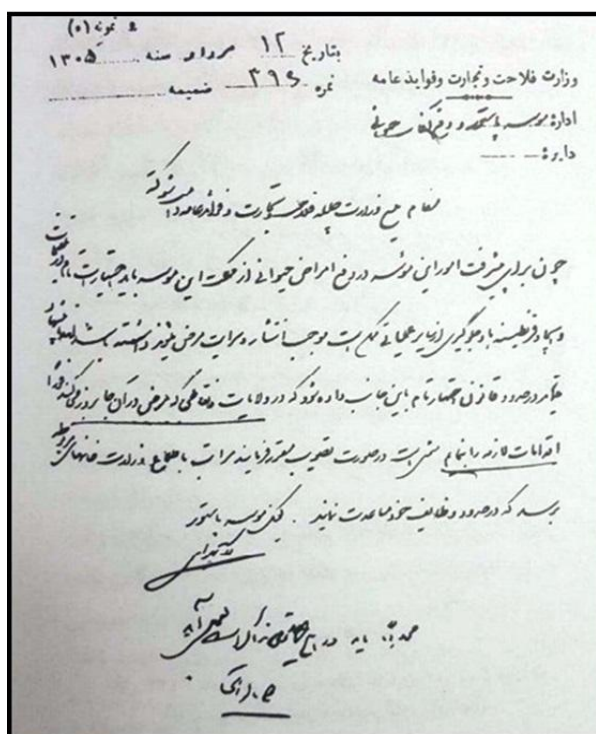 نمونه (۵)
بتاریخ ۱۲ مرداد سنه ۱۳۰۵
نمره ۲۹۶ ضمیمه
وزارت فلاحت و تجارت و فواید عامه
اداره موسسه پاستور و دفع آفات حیوانی
دایره
مقام منیع وزارت جلیله فلاحت و تجارت و فوائد عامه
چون برای پیشرفت امور این موسسه در دفع امراض حیوانی از مملکت این موسسه باید اختیارات تام
و ایجاد قرنطینه یا جلوگیری از سایر عملیاتی که ممکن است موجب انتشار و سرایت مرض بشود داشته باشد
در حدود قانون اختیارات تام باین جانب داده شود که در ولایات و نقاطی که مرض در آن جا بروز می کند فوراً
اقدامات لازمه را بنمایم متمنی است در صورت تصویب مقرر فرمایند مراتب باطلاع وزارت
برسد که در حدود وظایف خود مساعدت نمایند. موسسه پاستور